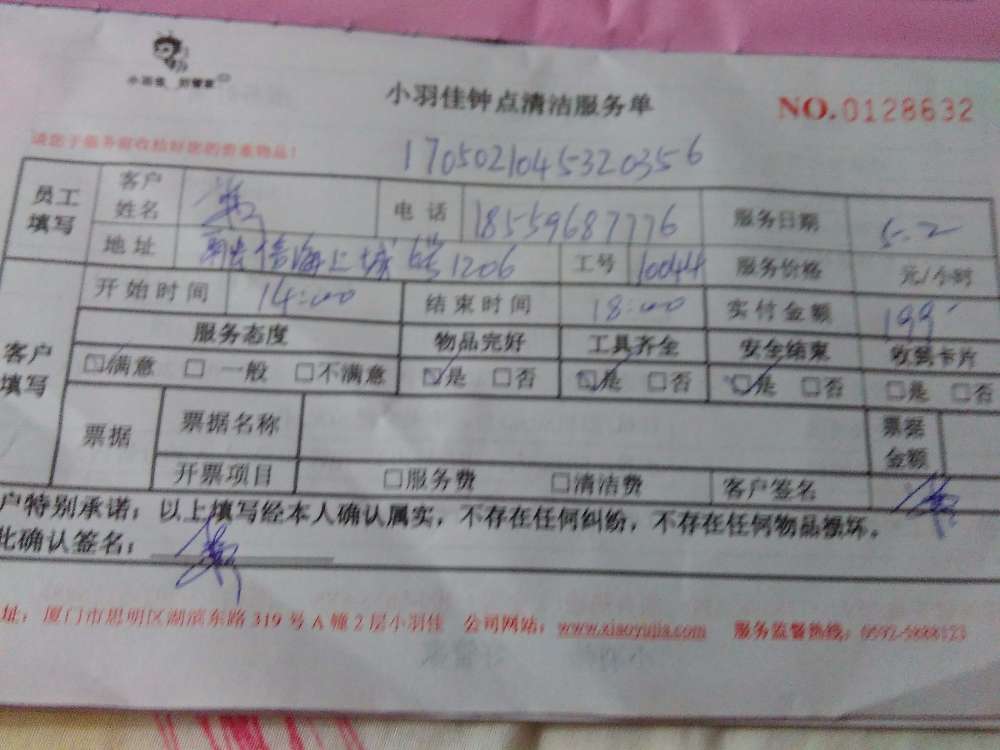 小羽佳钟点清洁服务单
NO.0128632
请您于服务前收拾好您的贵重物品!
1705021045320356
员工填写 客户姓名 电话 18559687776 服务日期 5.2
地址 海上城 1206 工号 10044 服务价格 元/小时
开始时间 14:00 结束时间 18:00 实付金额 199
客户填写 服务态度 物品完好 工具齐全 安全结束 收到卡片
☑满意 □一般 □不满意 ☑是 □否 ☑是 □否 ☑是 □否 □是 □否
票据 票据名称 票据金额
开票项目 □服务费 □清洁费 客户签名
户特别承诺：以上填写经本人确认属实，不存在任何纠纷，不存在任何物品损坏。
此确认签名：
址：厦门市思明区湖滨东路319号A幢2层小羽佳 公司网站：www.xiaoyujia.com 服务监督热线：0592-5888123